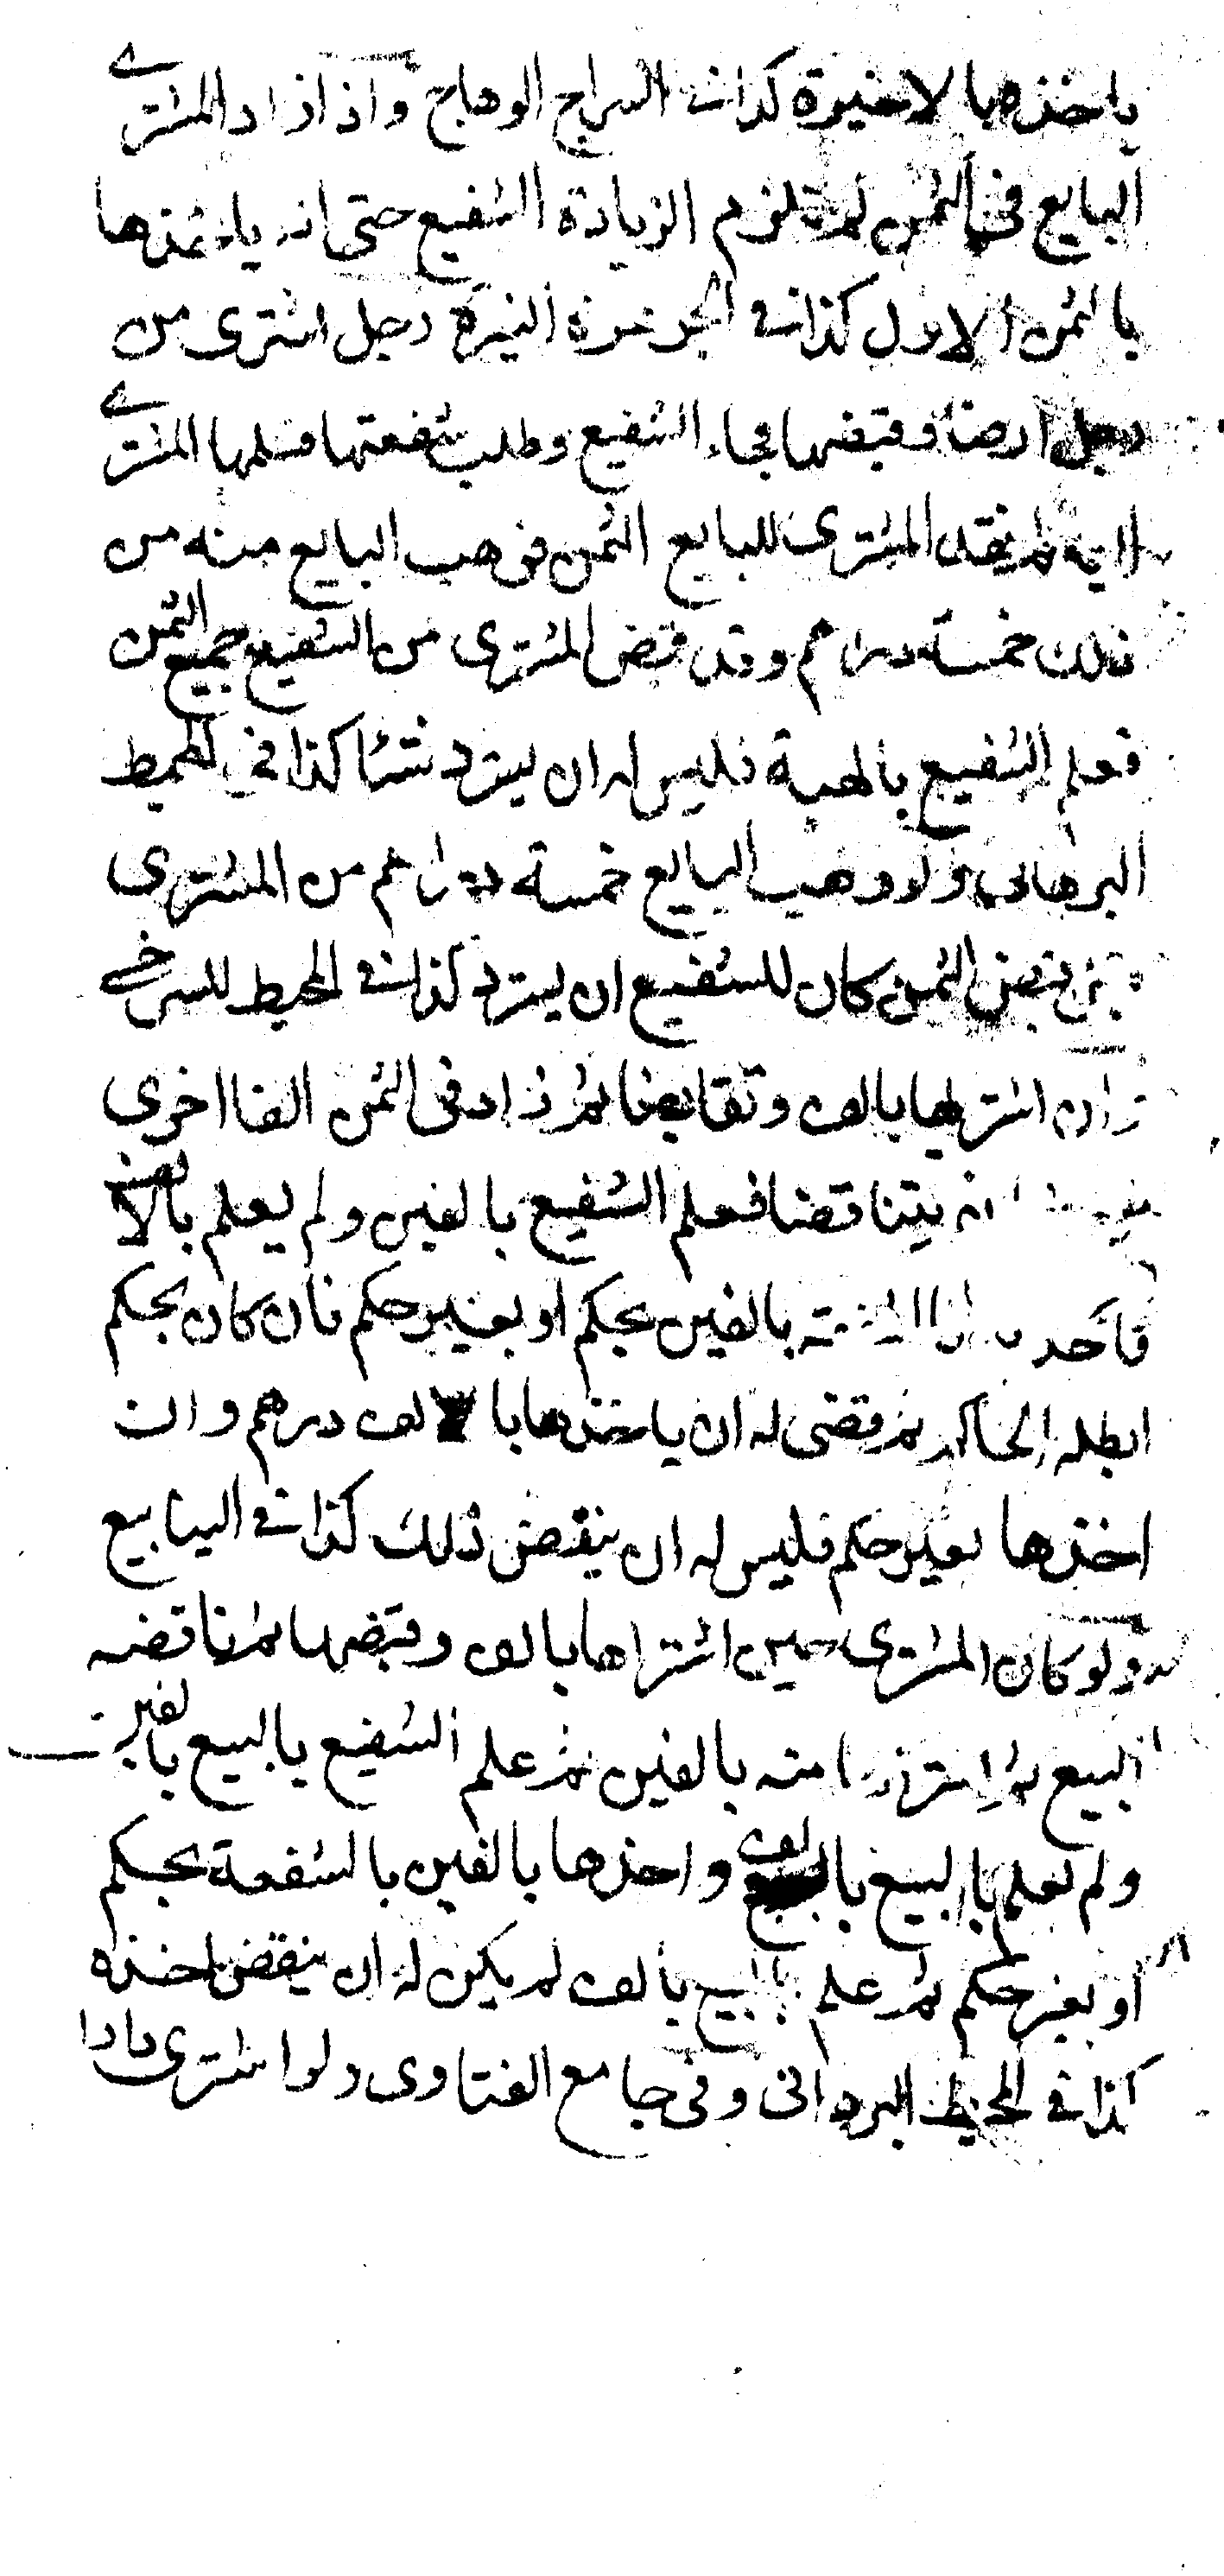 ياخذها بالاخيرة كذا في السراج الوهاج واذا زاد المشتري
البايع في الثمن لم تلزم الزيادة الشفيع حتى انه ياخذها
بالثمن الاول كذا في الجوهرة النيرة رجل اشترى من
رجل ارضا وقبضها فجاء الشفيع وطلب شفعتها فسلمها المشتري
اليه ثم نقد المشترى للبايع الثمن فوهب البايع منه من
ذلك خمسة دراهم وقد قبض المشترى من الشفيع جميع الثمن
فعلم الشفيع بالهبة فليس له ان يسترد شئا كذا في المحيط
البرهاني ولو وهب البايع خمسة دراهم من المشترى
قبل قبض الثمن كان للشفيع ان يسترد كذا في المحيط للسرخسي
اشتريها بالف وتقابضا ثم زاد في الثمن الفا اخرى
يتناقضا فعلم الشفيع بالفين ولم يعلم بالالف
بالفين بحكم او بغير حكم فان كان بحكم
ابطله الحاكم ثم قضى له ان ياخذها بالف درهم وان
اخذها بغير حكم فليس له ان ينقض ذلك كذا في الينابيع
ولو كان المشترى حين اشتراها بالف وقبضها ثم ناقضه
البيع ثم اشتراها منه بالفين ثم علم الشفيع بالبيع بالفين
ولم يعلم بالبيع بالف واخذها بالفين بالشفعة بحكم
او بغير حكم ثم علم بالبيع بالف لم يكن له ان ينقض اخذه
كذا في المحيط البرهانى وفى جامع الفتاوى ولو اشترى دارا